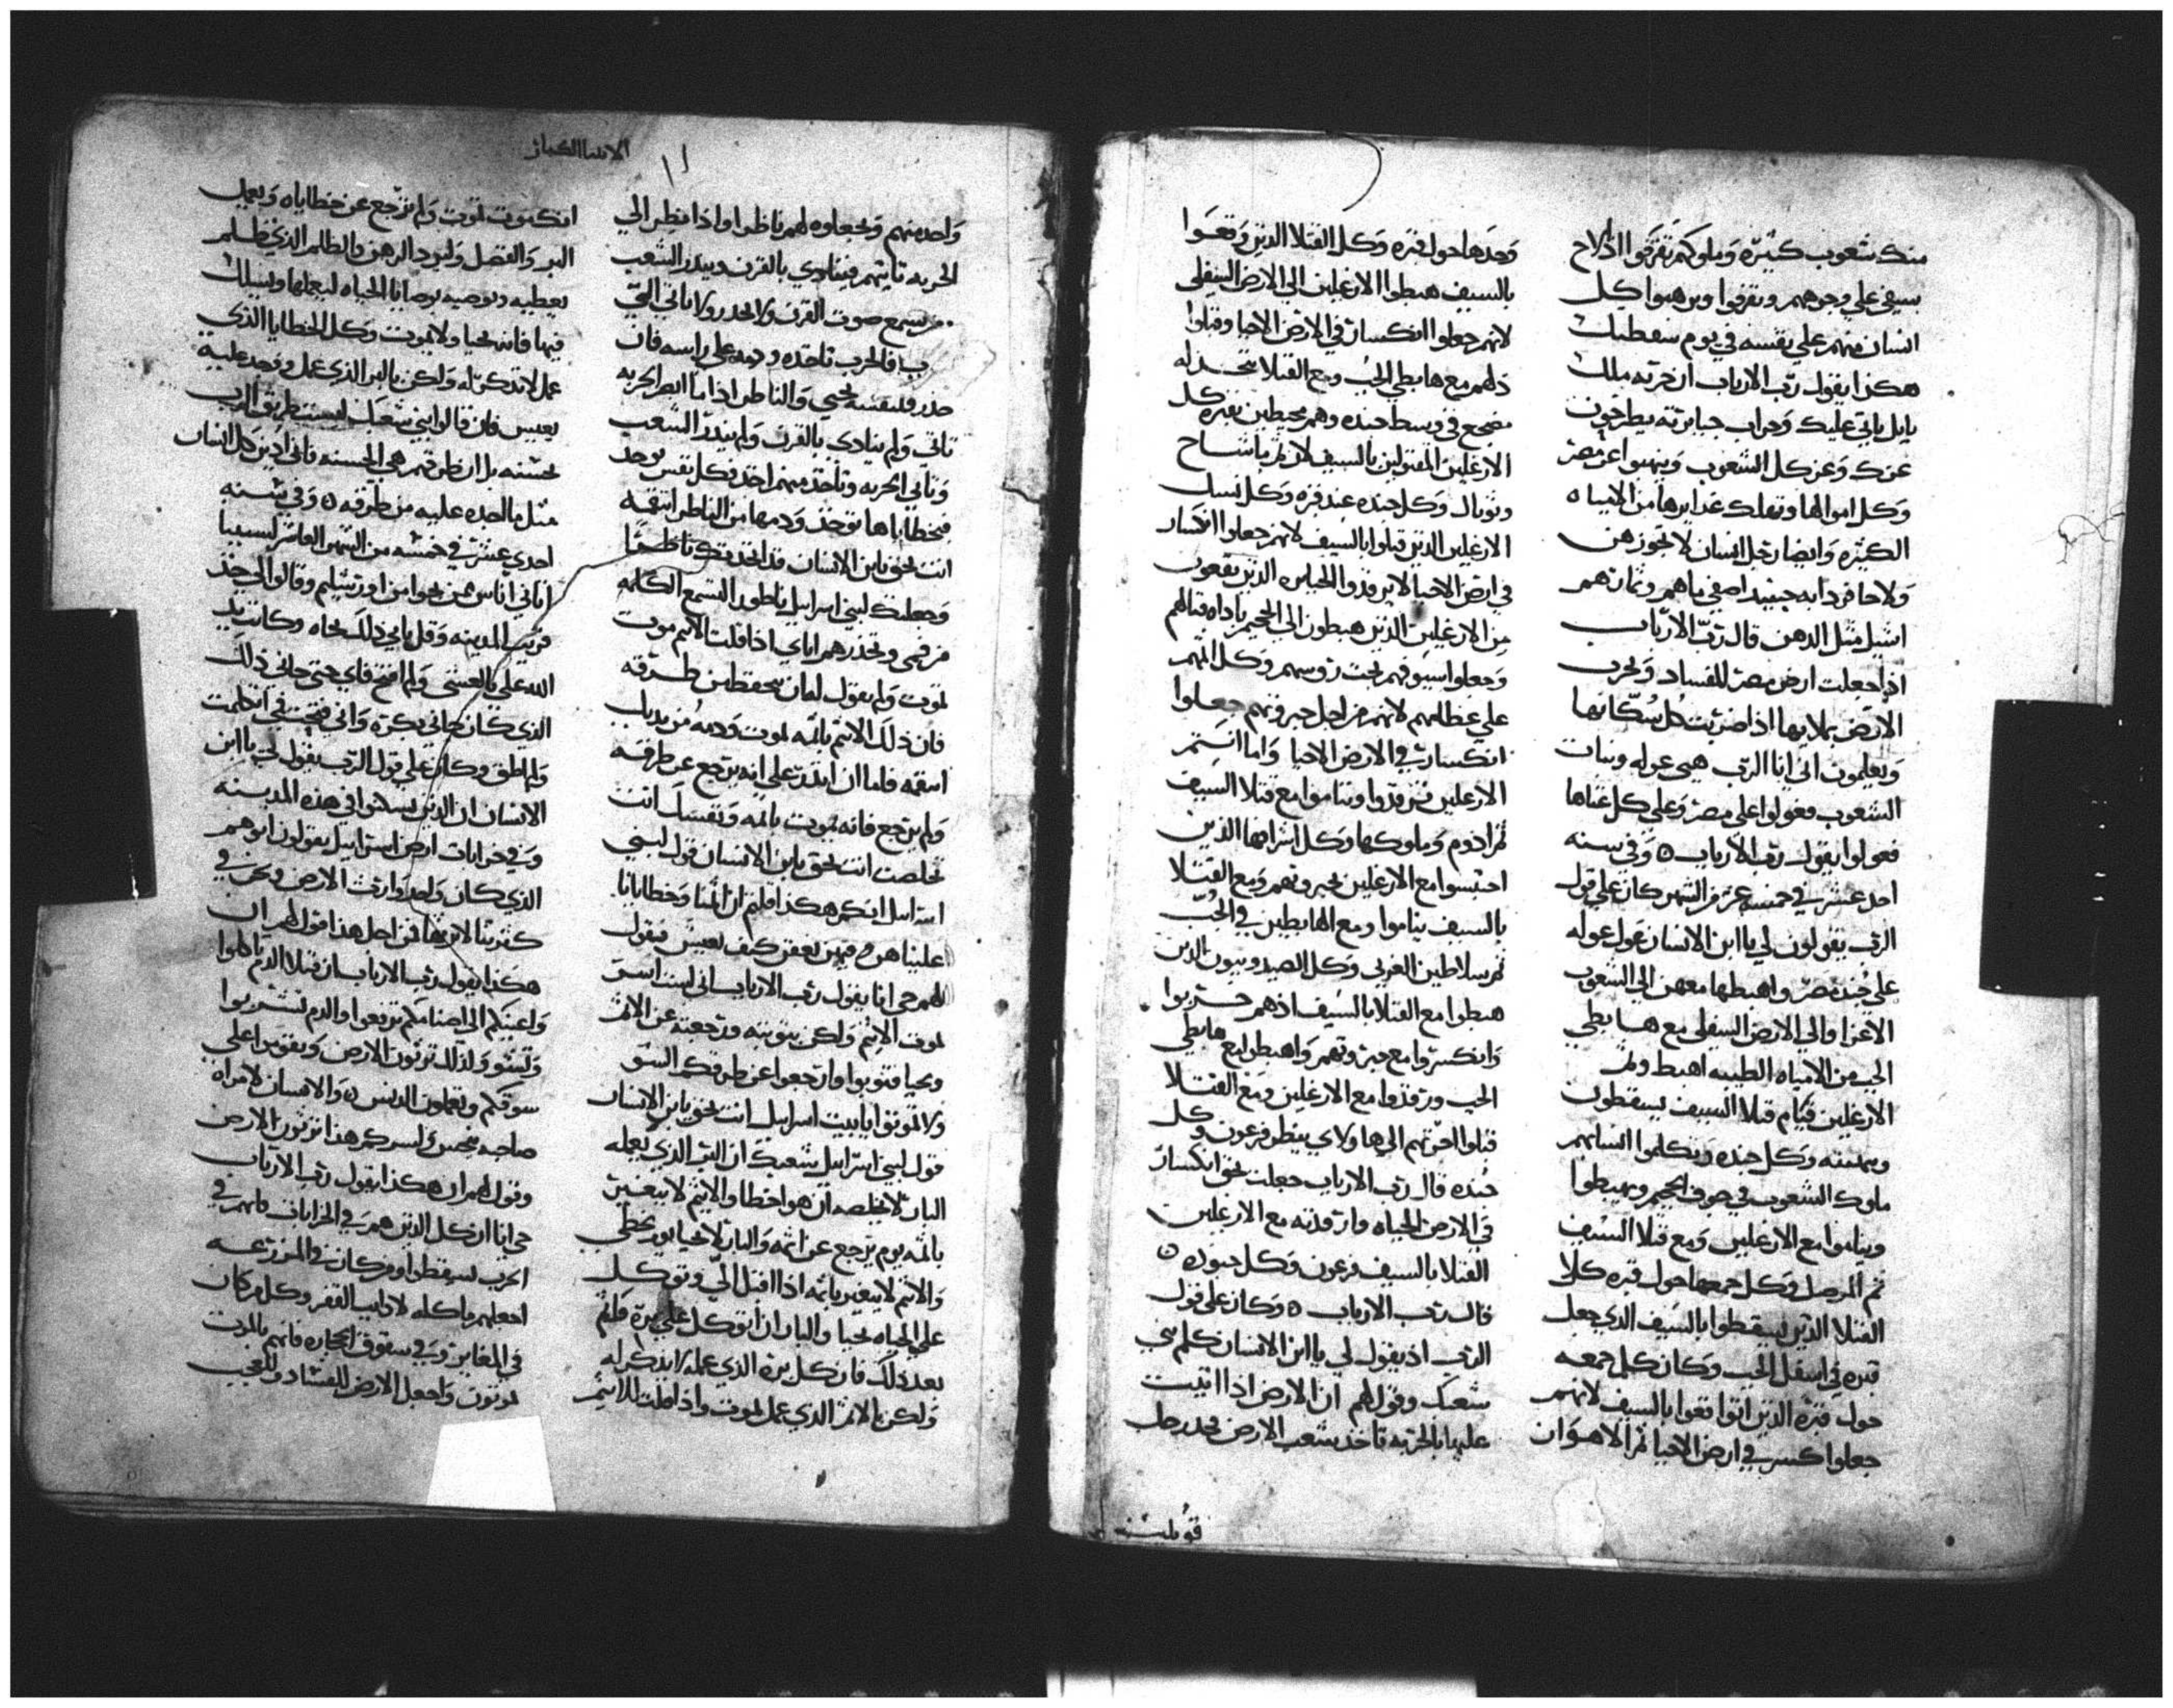 منك شعوب كثيره وملوكهم تفرقوا اذا لاح
سيفي علي وجوههم وتفرقوا ويرهبوا كل
انسان منهم علي نفسه في يوم سقطتك
هكذا يقول رب الارباب ان حربه ملك
بابل ياتي عليك وحراب جبابرته يطرحون
عزك وعز كل الشعوب وينهبوا عز مصر
وكل اموالها وتهلك من الامياه
الكثيره وايضا رجل انسان لا تجوزهن
ولا حافر دابه حينيد اصفي ماهم وثمارهم
اسيل مثل الدهن قال رب الارباب
اذا جعلت ارض مصر للفساد وتخرب
الارض بملايها اذا ضربت كل سكانها
ويعلمون اني انا الرب هي عوله وبنات
الشعوب فعولوا علي مصر وعلي كل غناها
فعولوا يقول رب الارباب ه وفي سنه
احد عشر في خمسه عشر من الشهر كان علي قول
الرب يقولون لي يا ابن الانسان عول عوله
علي جند مصر واهبطها معهن الي الشعوب
الاعزا والي الارض السفلي مع هابطي
الجب من الامياه الطيبه اهبط ونم
الارغلين قيام قتلا السيف يسقطون
وكل جنده ويكلموا
ملوك الشعوب في جوف الجحيم وبهبطوا
ويناموا مع الارغلين ومع قتلا السيف
ثم المرصل وكل جمعها حول قبره كلا
القتلا الذين سقطوا بالسيف الذي جعل
قبره في اسفل الجب وكان كل جمعه
حول قبره الذين اتوا وقعوا بالسيف لانهم
جعلوا كسر في ارض الاحيا ثم الاهوان
وحدها حول قبره وكل القتلا الذين وقعوا
بالسيف هبطوا الارغلين الي الارض السفلي
لانهم جعلوا انكسار في الارض الاحيا وقبلوا
ذلهم مع هابطي الجب ومع القتلا تتخذ له
مضجع في وسط جنده وهم محيطين بقبره كل
الارغلين المقتولين بالسيف لان ثم باشاح
وثوبال وكل جنده عند قبره وكل
الارغلين الذين قتلوا بالسيف لانهم جعلوا انكسار
في ارض الاحيا لا يرقدوا الجبابره الذين يقعون
من الارغلين الذين هبطون الي الجحيم باداه قتالهم
وجعلوا اسيوفهم تحت رؤسهم وكل اثمهم
علي عظامهم لانهم من اجل جبروتهم جعلوا
انكسار في الارض الاحيا واما انتم
الارغلين فترقدوا وتناموا مع قتلا السيف
ثم ادوم وملوكها وكل اشرافها الذين
احتبسوا مع الارغلين بجبروتهم ومع القتلا
بالسيف يناموا ومع الهابطين في الجب
ثم سلاطين الغربي وكل الصيدونيون الذين
هبطوا مع القتلا بالسيف اذهم
وانكسروا مع جبروتهم واهبطوا مع هابطي
الجب ورقدوا مع الارغلين ومع القتلا
قبلوا اليها ولاي ينظر فرعون وكل
جنده قال رب الارباب جعلت تحو انكسار
في الارض الحياه وارقدته مع الارغلين
القتلا بالسيف فرعون وكل جنوده ه
قال رب الارباب ه وكان علي قول
الرب اذ يقول لي يا ابن الانسان كلم بني
شعبك وقول لهم ان الارض اذا اتيت
عليها بالحربه تاخذ شعب الارض رجل
قوبلت
الانبيا الكبار
واحد منهم وتجعلوه لهم ناظر واذا نظر الي
الحربه تاتيهم فينادي بالقرن وينذر الشعب
من يسمع صوت القرن ولا يحذر ولا ياتي التي
فالحرب تاخذه ودمه علي راسه فان
حذر فلنفسه يحيي والناظر اذا ما ابصر الحربه
تاتي ولم ينادي بالقرن ولم ينذر الشعب
وتاتي الحربه وتاخذ منهم احد فكل نفس توخذ
فبخطاياها توخذ ودمها من الناظر انتقمه
انت تحق يا ابن الانسان قد اتخذتك ناظرا
وجعلتك لبني اسراييل ناطور لتسمع الكلمه
من فمي وتحذرهم اياي اذا قلت الاثيم موت
تموت ولم تقول لهان يتحفظ من طرقه
فان ذلك الاثيم باثمه يموت ودمه من يديك
انتقمه فاما ان انذرت علي انه يرجع عن طرقه
ولم يرجع فانه يموت باثمه ونفسك انت
تخلصت انت تحق يا ابن الانسان قول لبني
اسراييل انكم هكذا قلتم ان اثمنا وخطايانا
علينا هن وفيهن نعفن كيف نعيش فتقول
لهم حي انا يقول رب الارباب اني لست اسر
لموت الاثيم ولكن بتوبته ورجعته عن الاثم
ويحيا فتوبوا وارجعوا عن طرقكم السو
ولا تموتوا يا بيت اسراييل انت تحق يا ابن الانسان
قول لبني اسراييل شعبك ان البر الذي يعمله
البار لا يخلصه ان هو اخطا والاثيم لا يتغير
باثمه يوم يرجع عن اثمه والبار لا يحيا يوم يخطي
والاثيم لا يتغير باثمه اذا اقبل الي وتوكل
علي الحياه يحيا والبار ان اتوكل علي بره فاثم
بعد ذلك فان كل بره الذي عمله لا يذكر له
ولكن بالاثم الذي عمل يموت واذا قلت للاثيم
انك موت تموت ولم ترجع عن خطاياه ويعمل
البر والفضل وليرد الرهن والظلم الذي ظلم
يعطيه ونوصيه بوصايا الحياه ليعملها ويسلك
فيها فانه يحيا ولا يموت وكل الخطايا الذي
عمل لا تذكر له ولكن بالبر الذي عمل وفوجد عليه
يعيش فان قالوا بني شعبك ليست طريق الرب
بحسنه بل ان طرقهم هي الحسنه فاني ادين كل انسان
مثل ما الحده عليه من طرقه ه وفي سنه
احدي عشر في خمسه من الشهر العاشر لسبينا
اتاني اناس من نحوا من اورشليم وقالوا لي خذ
قريت المدينه وقل ما بي ذلك نجاه وكانت يد
الله علي بالعشي ولم افتح فاي حتي جاني ذلك
الذي كان جاني بكره واني فتحت في اتكلمت
ولم اطق وكان علي قول الرب يقول لي يا ابن
الانسان ان الذين يسكنوا في هذه المدينه
وفي خرابات ارض اسراييل يقولون ابرهم
الذي كان واحد وارث الارض ونحن في
كثرتنا لا نرثها من اجل هذا قول لهم ان
هكذا يقول رب الارباب ان قتلا الدم ياكلوا
واعينكم الي اصنامكم ترفعوا والدم تشربوا
ولذلك ترثون الارض وتقوموا علي
سوقكم وتعملون الدنس ه والانسان لامراه
صاحبه ينجس وليس كمر هذا ترثون الارض
وتقول لهم ان هكذا يقول رب الارباب
حي انا ان كل الذين هم في الخرابات فانهم في
الحرب تسقطوا ومن كان في المزرعه
اجعلهم ماكله لادايب القفر وكل من كان
في المغاير وفي سقوق الحجاره فانهم بالموت
تموتون واجعل الارض للفساد وللعجب